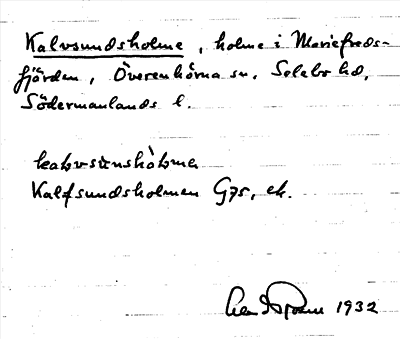 Kalvsundsholme, holme i Mariefreds-
fjärden, Överenhörna sn. Selebo hd,
Södermanlands l.
Kalfsundsholmen G75, ek.
1932